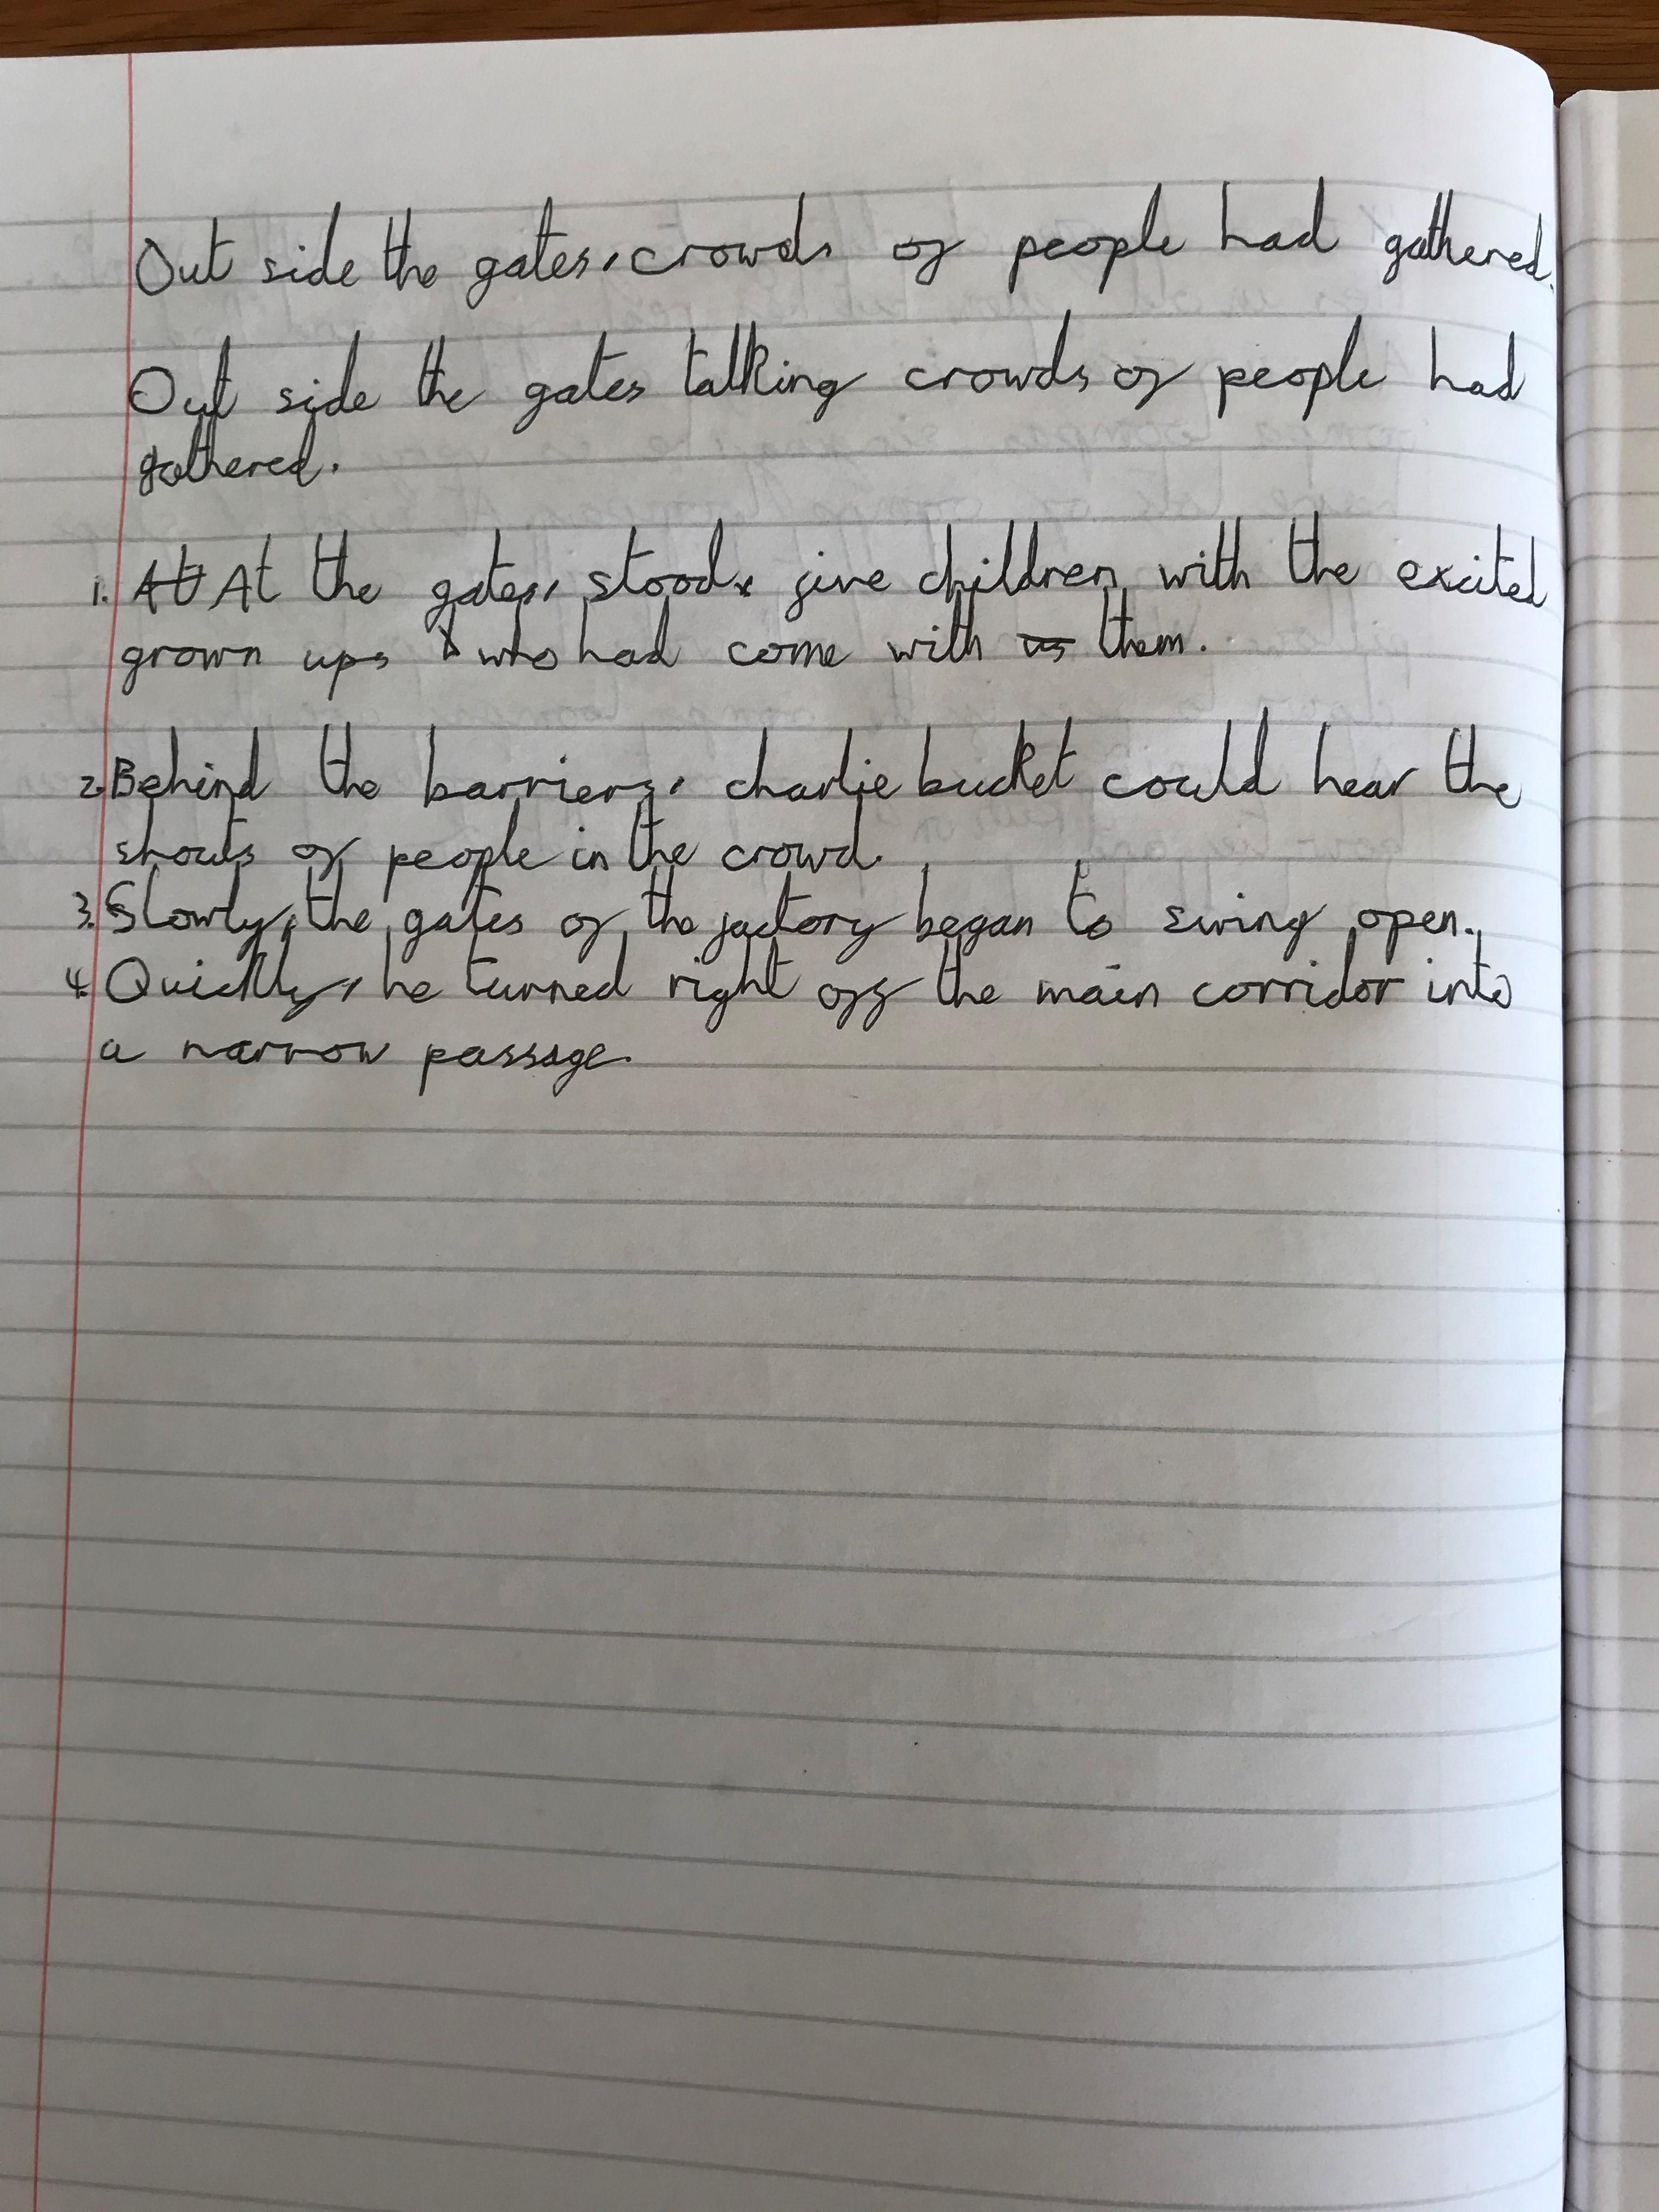 Out side the gates, crowds of people had gathered.
Out side the gates talking crowds of people had
gathered.
1. At At the gates, stood five children with the excited
grown ups who had come with us them.
2. Behind the barriers, charlie bucket could hear the
shouts of people in the crowd.
3. Slowly, the gates of the factory began to swing open.
4. Quickly, he turned right off the main corridor into
a narrow passage.